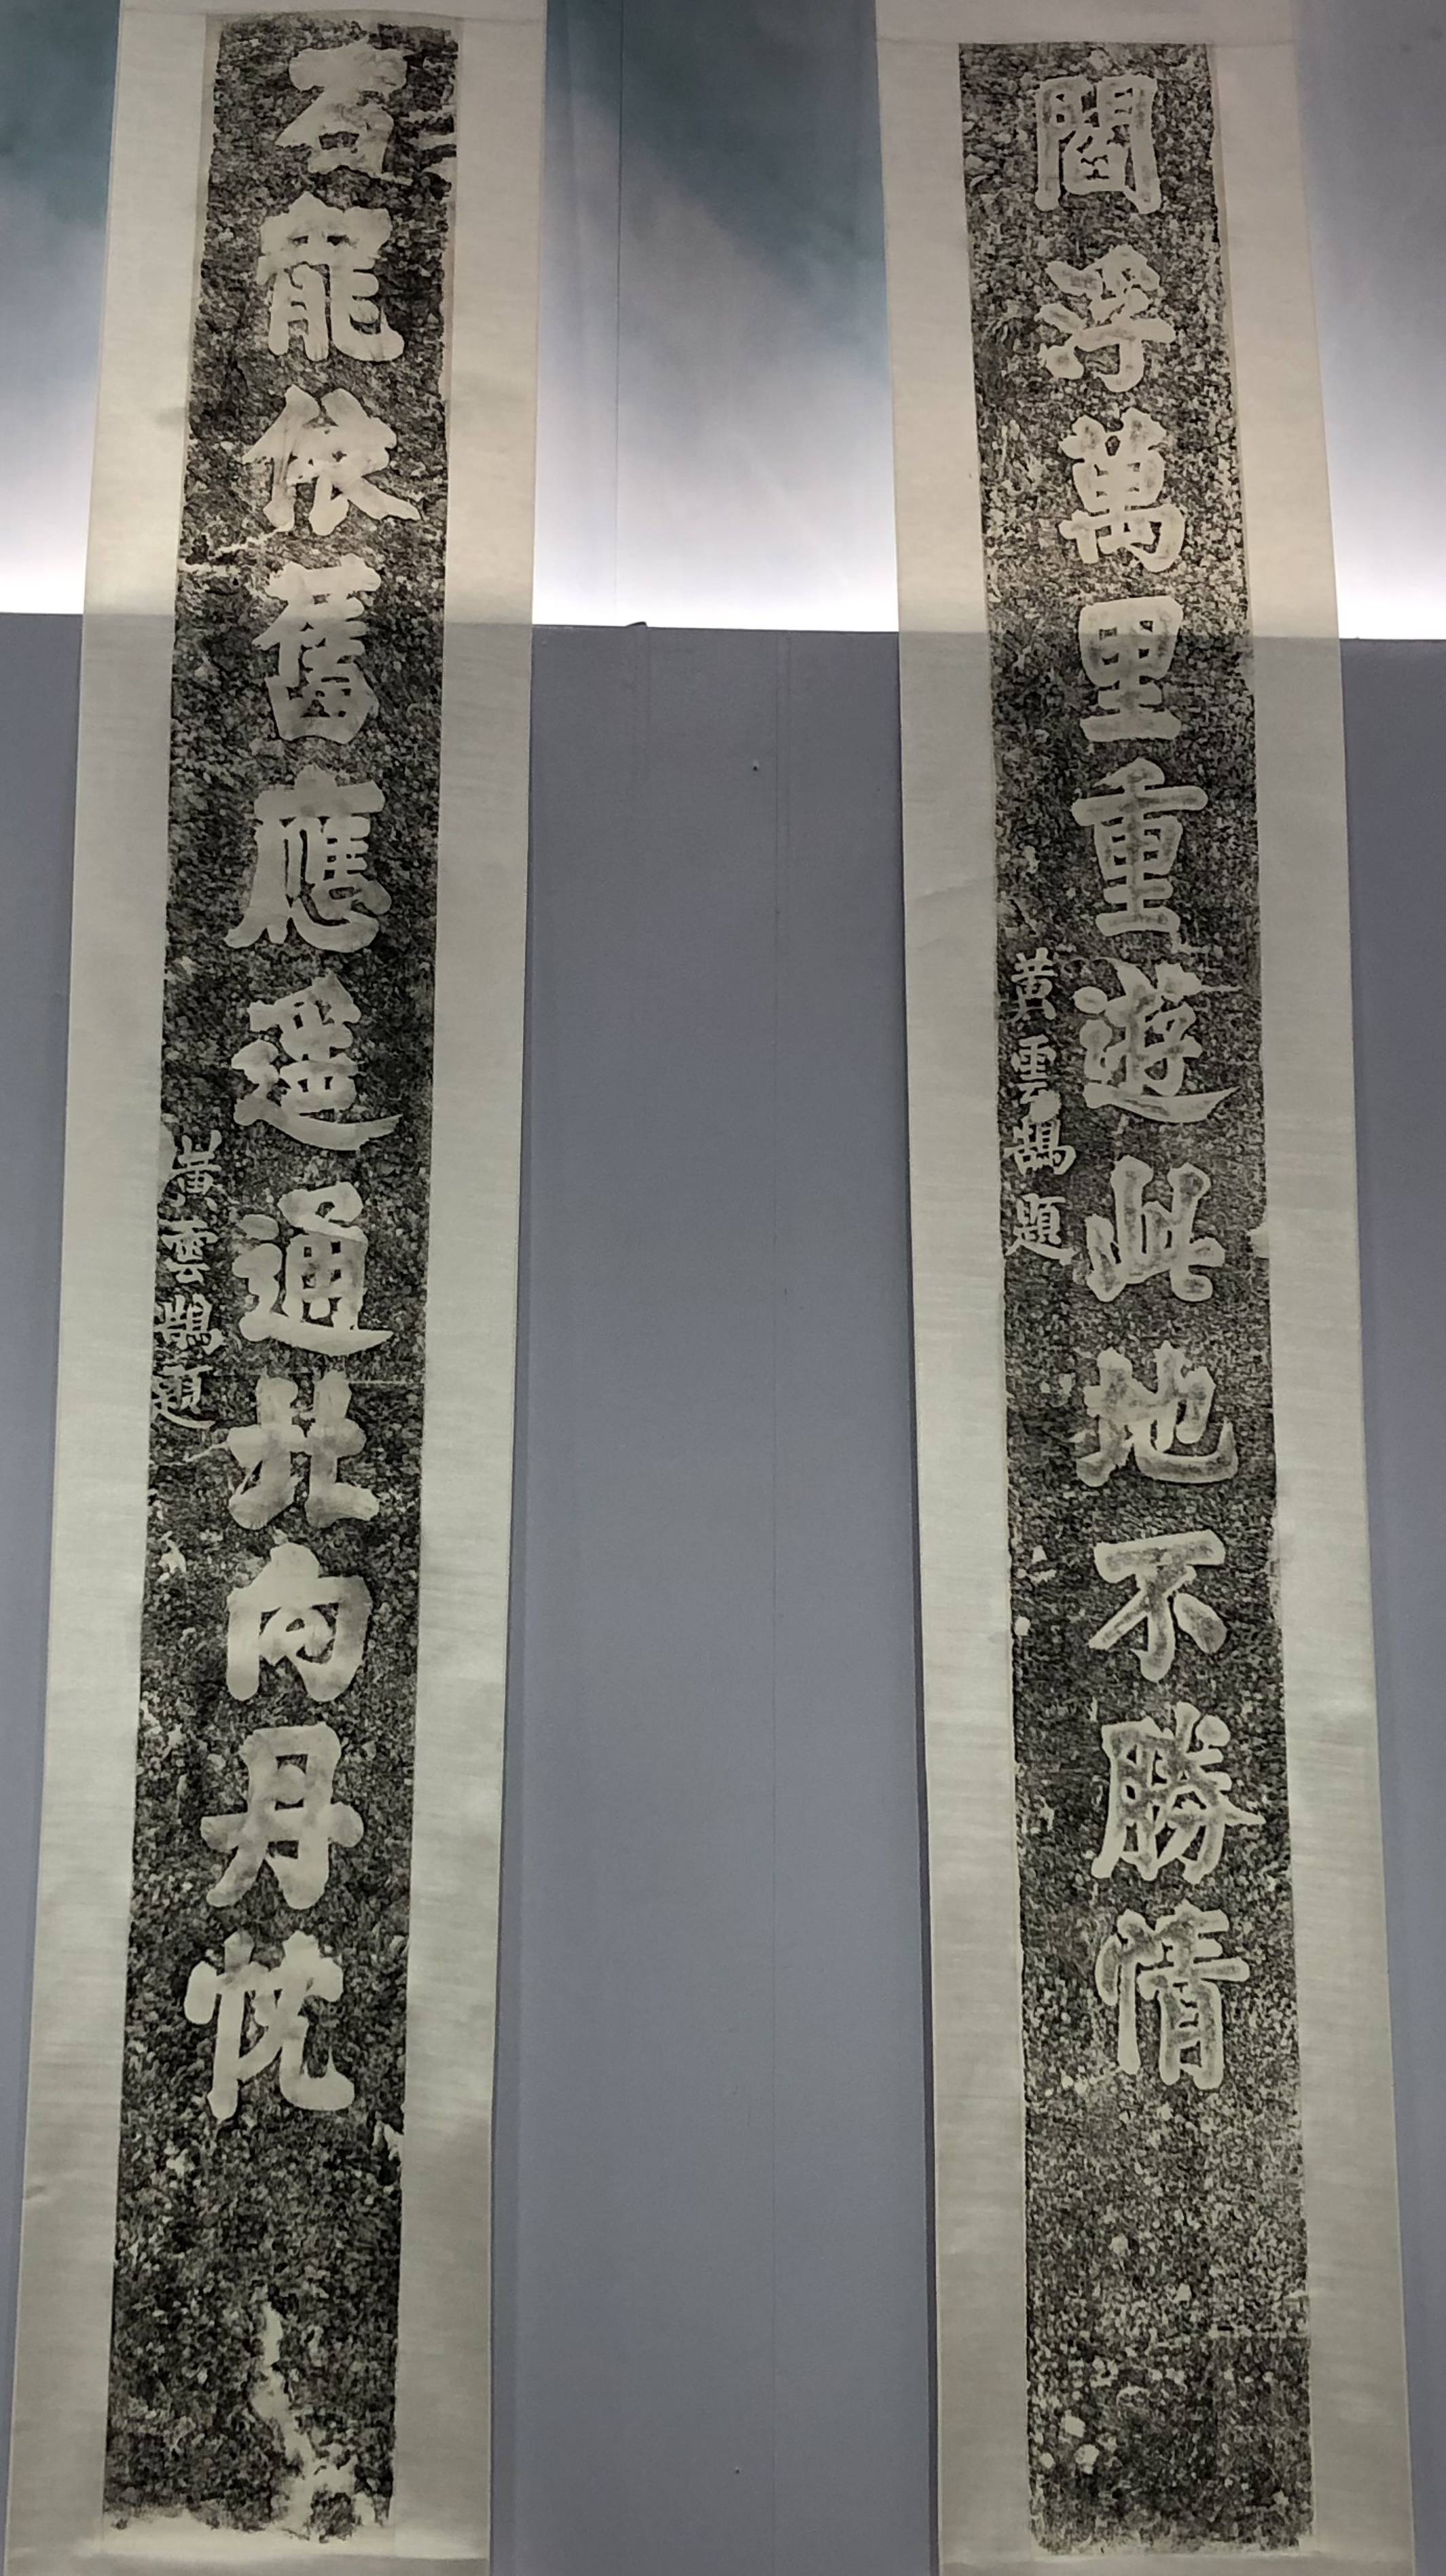 閻浮萬里重遊此地不勝情
黃雲鵠題
石能依舊應通向丹忱
黃雲鵠題